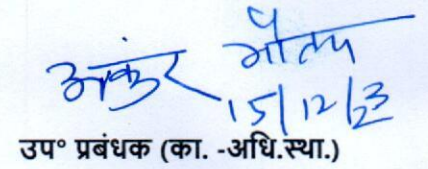 अंकुर गौतम
15/12/23
उप° प्रबंधक (का. -अधि.स्था.)